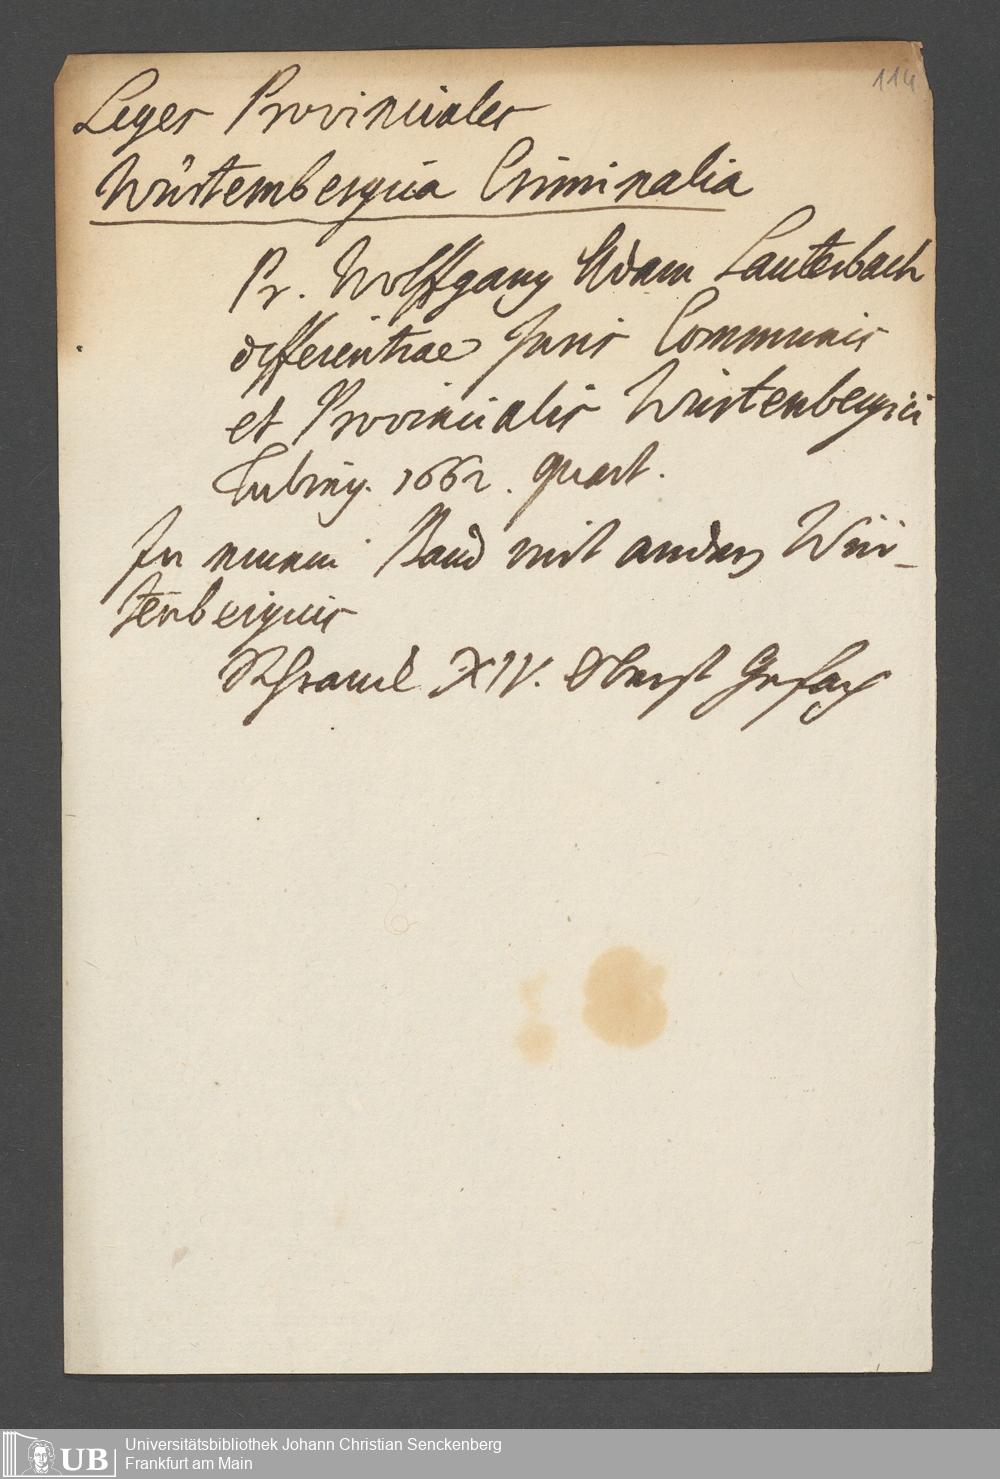 114
Leges Provinciales
Würtembergica Criminalia
Pr. Wolffgang Adam Lauterbach
differentiae Juris Communis
et Provincialis Würtenbergici
Tubing. 1662. quart.
In einem Band mit andern Wür-
tenbergicis
Schranck XIV. Oberst Gefach
UB
Universitätsbibliothek Johann Christian Senckenberg
Frankfurt am Main